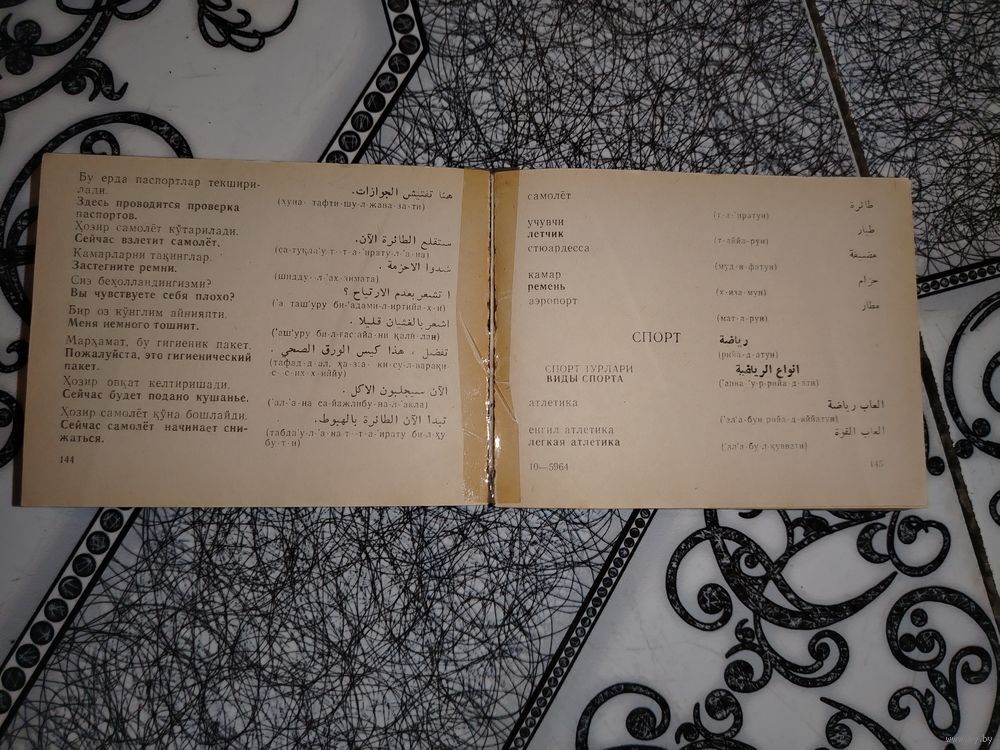 Бу ерда паспортлар текшири-
лади.
Здесь проводится проверка
паспортов.
هنا تفتيش الجوازات.
(ҳуна· тафти·шу·л·жава·за·ти)
Ҳозир самолёт кўтарилади.
Сейчас взлетит самолёт.
ستقلع الطائرة الآن.
(са·туқла'у·т·т·а·'ирату·л·'а·на)
Камарларни тақинглар.
Застегните ремни.
شدوا الاحزمة .
(шидду··л·'ах·зимата)
Сиз беҳолландингизми?
Вы чувствуете себя плохо?
ا تشعر بعدم الارتياح ؟
('а таш'уру би·'адами·л·иртийа·х·и)
Бир оз кўнглим айнияпти.
Меня немного тошнит.
اشعر بالغثيان قليلا .
('аш'уру би·л·ғас:айа·ни қали·лан)
Марҳамат, бу гигиеник пакет.
Пожалуйста, это гигиенический
пакет.
تفضل ، هذا كيس الورق الصحي .
(тафад·д·ал, ҳа·з:а· ки·су·л·варақи
с·с·их·х·иййу)
Ҳозир овқат келтиришади.
Сейчас будет подано кушанье.
الآن سيجلبون الاكل .
('ал·'а·на са·йажлибу·на·л·'акла)
Ҳозир самолёт қўна бошлайди.
Сейчас самолёт начинает сни-
жаться.
تبدا الآن الطائرة بالهبوط.
(табда'у·л·'а·на·т·т·а·'ирату би·л·ҳу
бу·т·и)
144
самолёт
طائرة
(т·а·'иратун)
учувчи
летчик
طيار
(т·аййа·рун)
стюардесса
مضيفة
(муд·и·фатун)
камар
ремень
حزام
(х·иза·мун)
аэропорт
مطار
(мат·а·рун)
СПОРТ
رياضة
(рийа·д·атун)
СПОРТ ТУРЛАРИ
ВИДЫ СПОРТА
انواع الرياضية
('анва·'у·р·рийа·д·ати)
атлетика
العاب رياضة
('ал'а·бун рийа·д·иййатун)
енгил атлетика
легкая атлетика
العاب القوة
('ал'а·бу·л·қуввати)
10—5964
145
www.ay.by